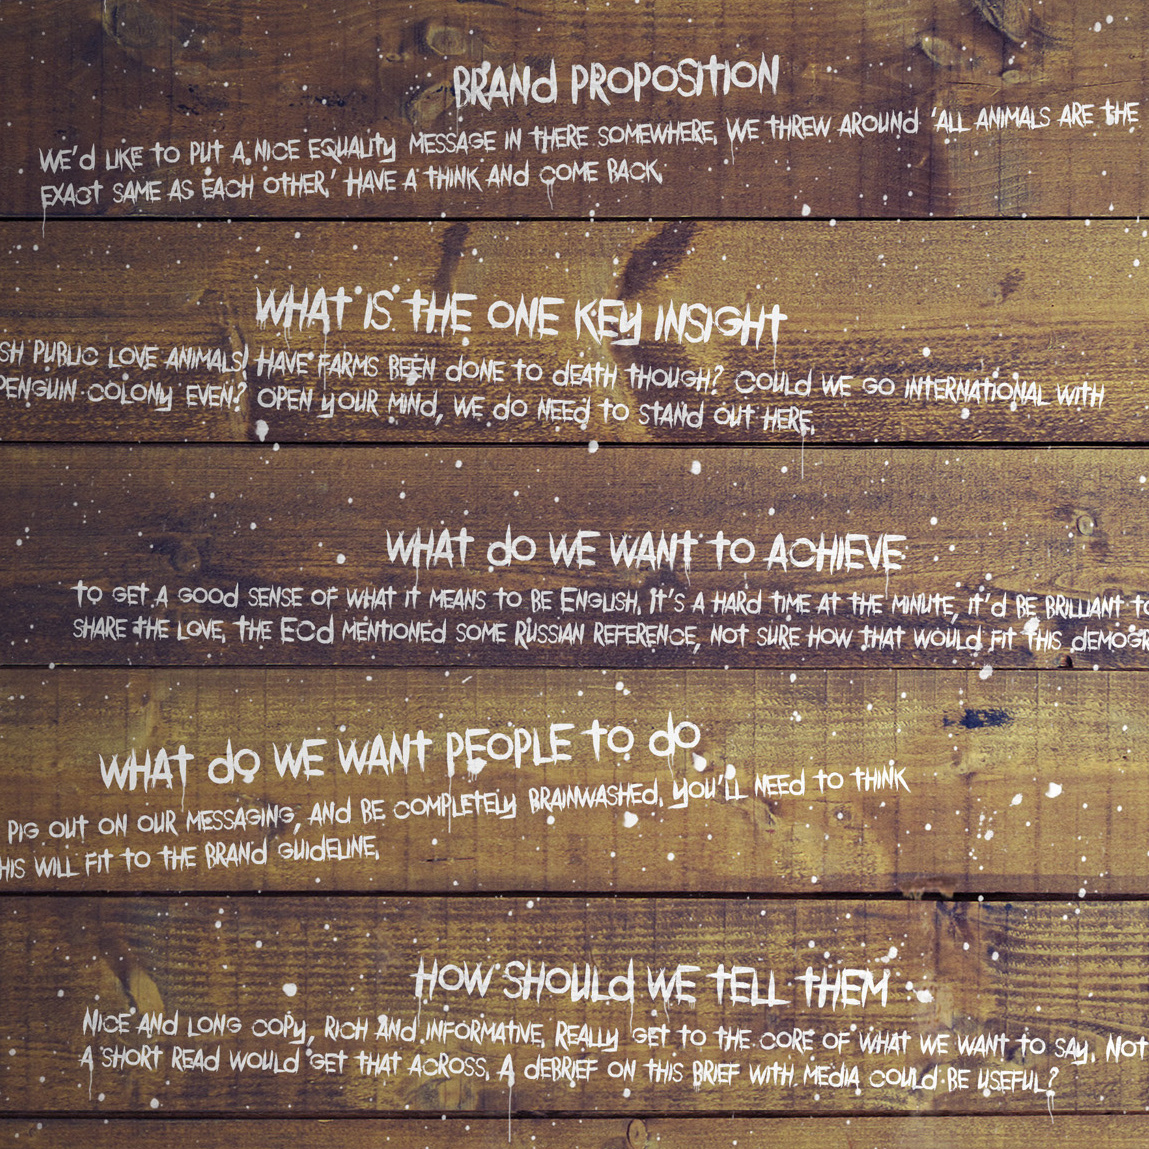 BRAND PROPOSITION
WE'D LIKE TO PUT A NICE EQUALITY MESSAGE IN THERE SOMEWHERE, WE THREW AROUND 'ALL ANIMALS ARE THE
EXACT SAME AS EACH OTHER,' HAVE A THINK AND COME BACK.
WHAT IS THE ONE KEY INSIGHT
SH PUBLIC LOVE ANIMALS! HAVE FARMS BEEN DONE TO DEATH THOUGH? COULD WE GO INTERNATIONAL WITH
PENGUIN COLONY EVEN? OPEN YOUR MIND, WE DO NEED TO STAND OUT HERE.
WHAT DO WE WANT TO ACHIEVE
TO GET A GOOD SENSE OF WHAT IT MEANS TO BE ENGLISH, IT'S A HARD TIME AT THE MINUTE, IT'D BE BRILLIANT TO
SHARE THE LOVE, THE ECD MENTIONED SOME RUSSIAN REFERENCE, NOT SURE HOW THAT WOULD FIT THIS DEMOGR
WHAT DO WE WANT PEOPLE TO DO
PIG OUT ON OUR MESSAGING, AND BE COMPLETELY BRAINWASHED. YOU'LL NEED TO THINK
HIS WILL FIT TO THE BRAND GUIDELINE.
HOW SHOULD WE TELL THEM
NICE AND LONG COPY, RICH AND INFORMATIVE, REALLY GET TO THE CORE OF WHAT WE WANT TO SAY. NOT
A SHORT READ WOULD GET THAT ACROSS. A DEBRIEF ON THIS BRIEF WITH MEDIA COULD BE USEFUL?